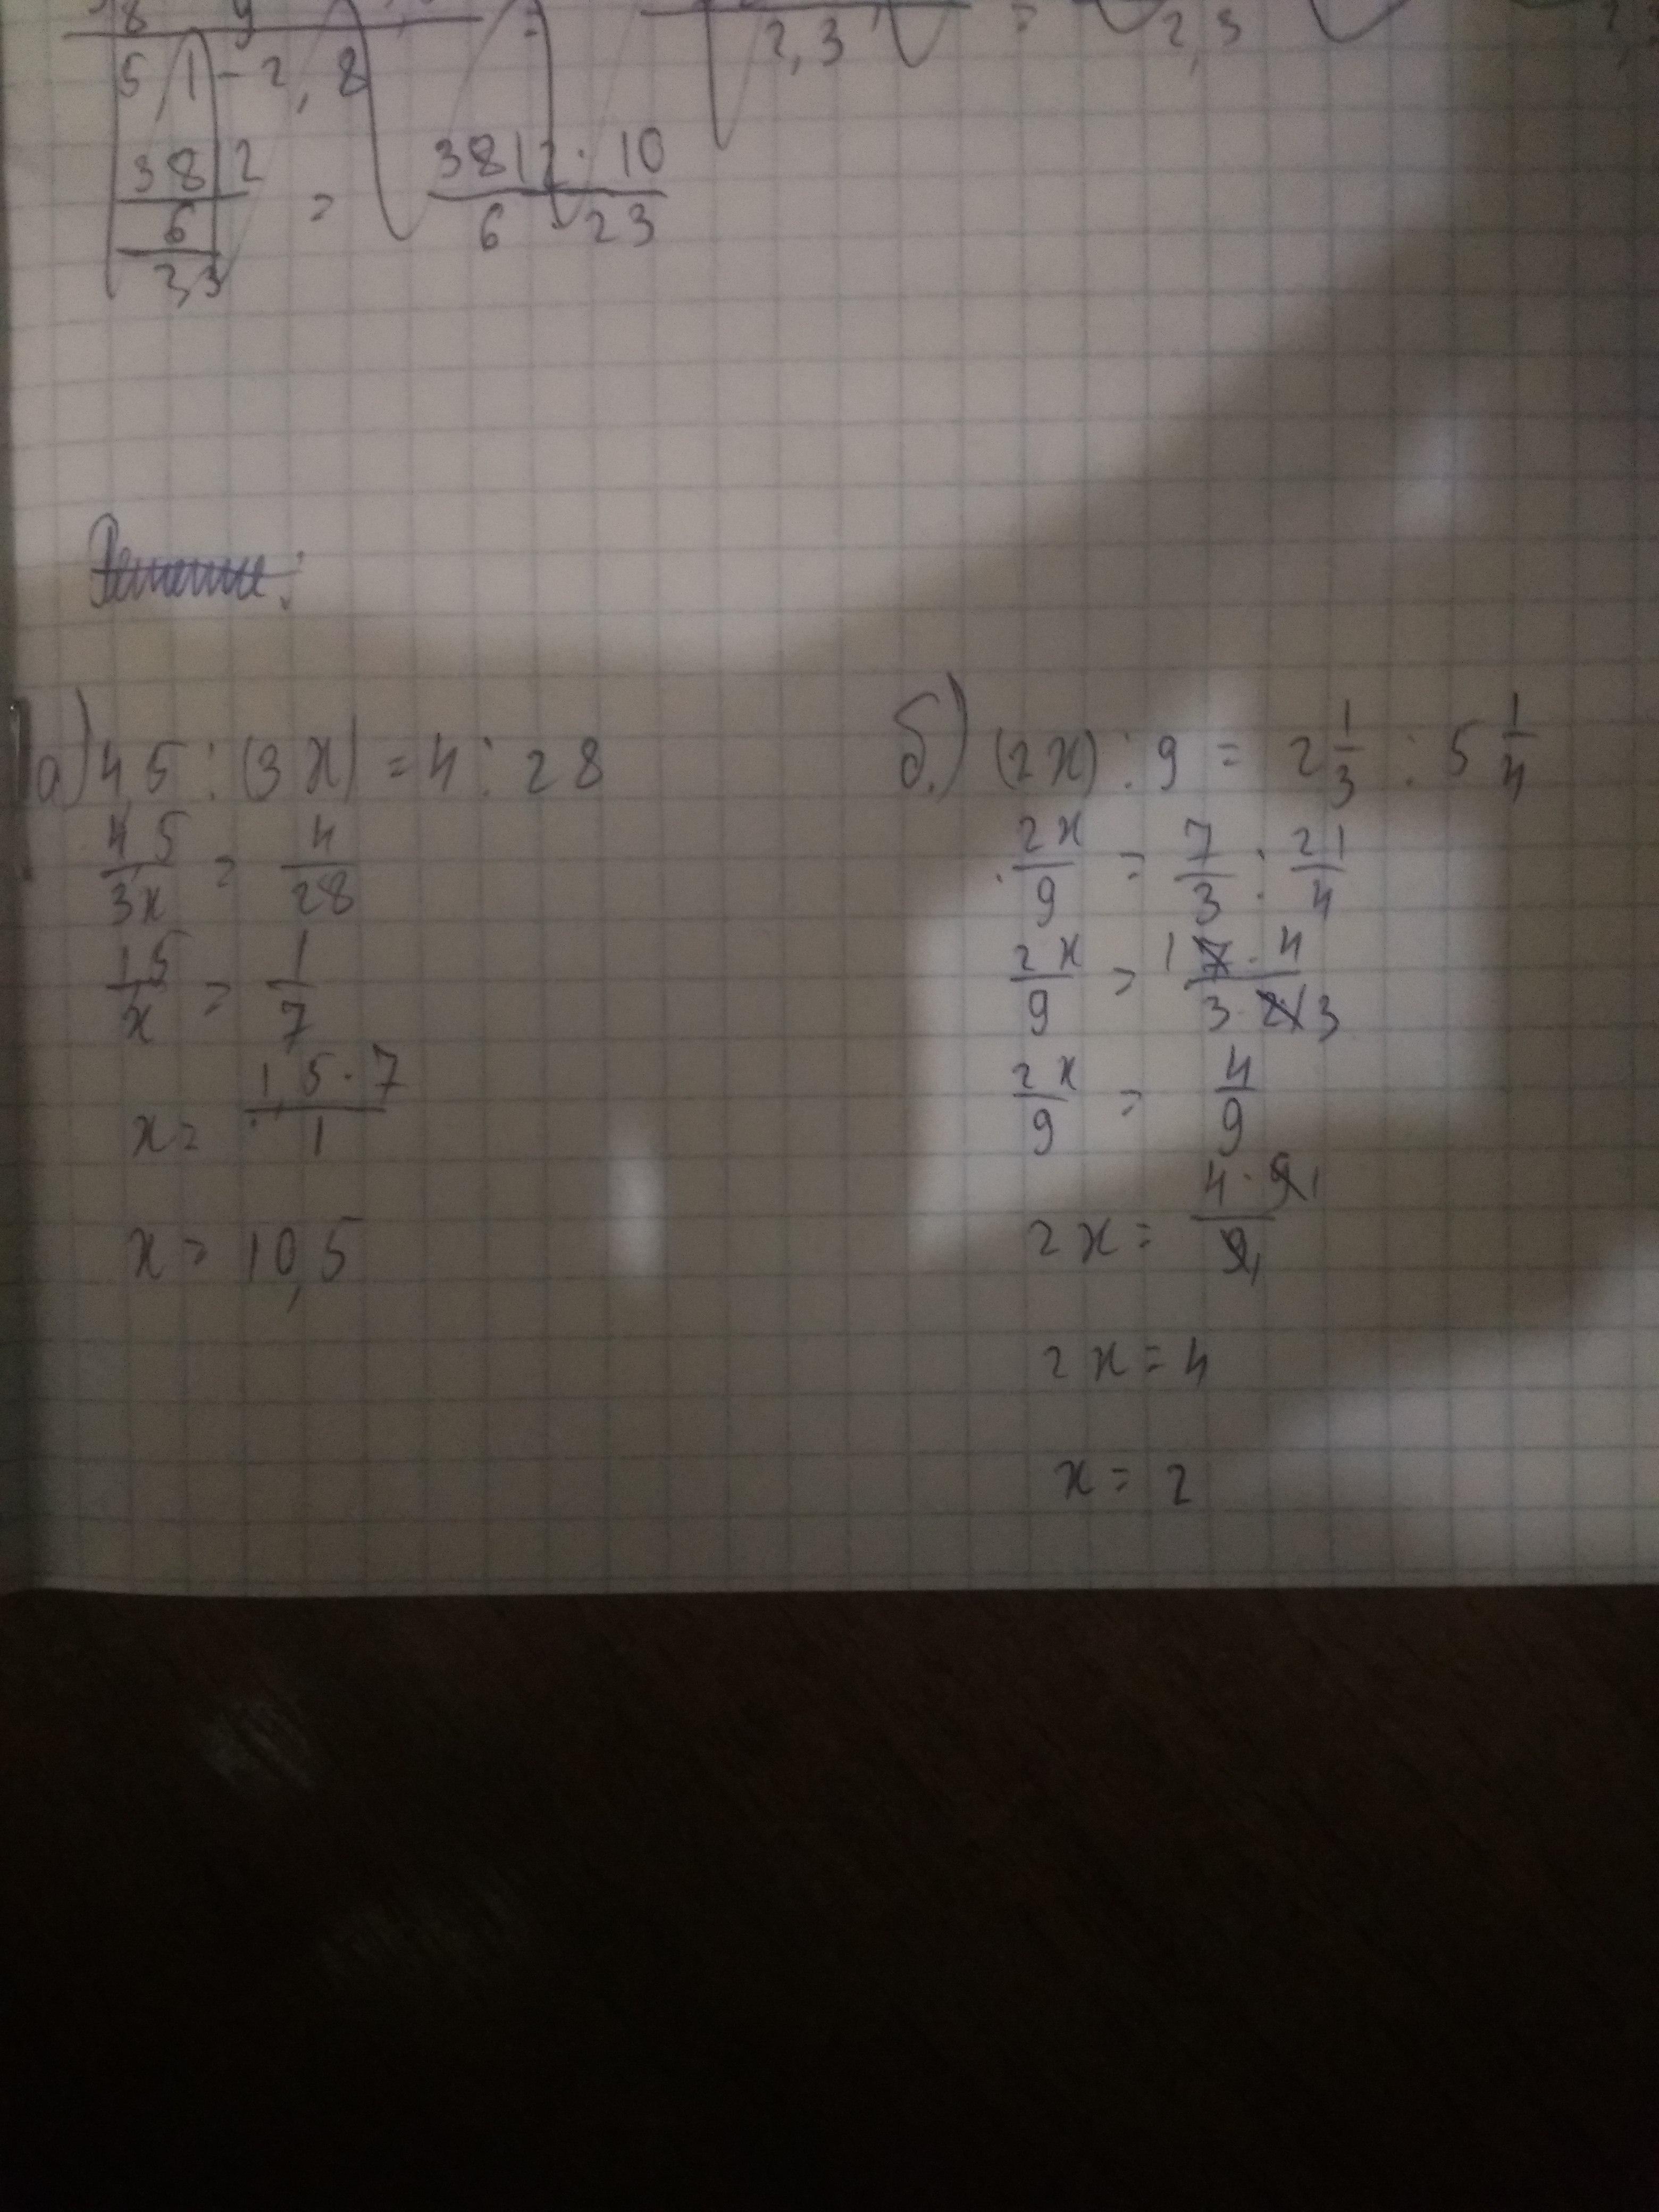 5,1 - 2,8
2,3
2,3
38 | 2
6
23
=
381 2 · 10
6 · 23
Решение:
а) 4,5 : (3x) = 4 : 28
4,5/3x = 4/28
1,5/x = 1/7
x = 1,5 · 7/1
x = 10,5
б.) (2x) : 9 = 2 1/3 : 5 1/4
2x/9 = 7/3 : 21/4
2x/9 = 1 7 · 4/3 · 21 3
2x/9 = 4/9
2x = 4 · 9 1/9 1
2x = 4
x = 2